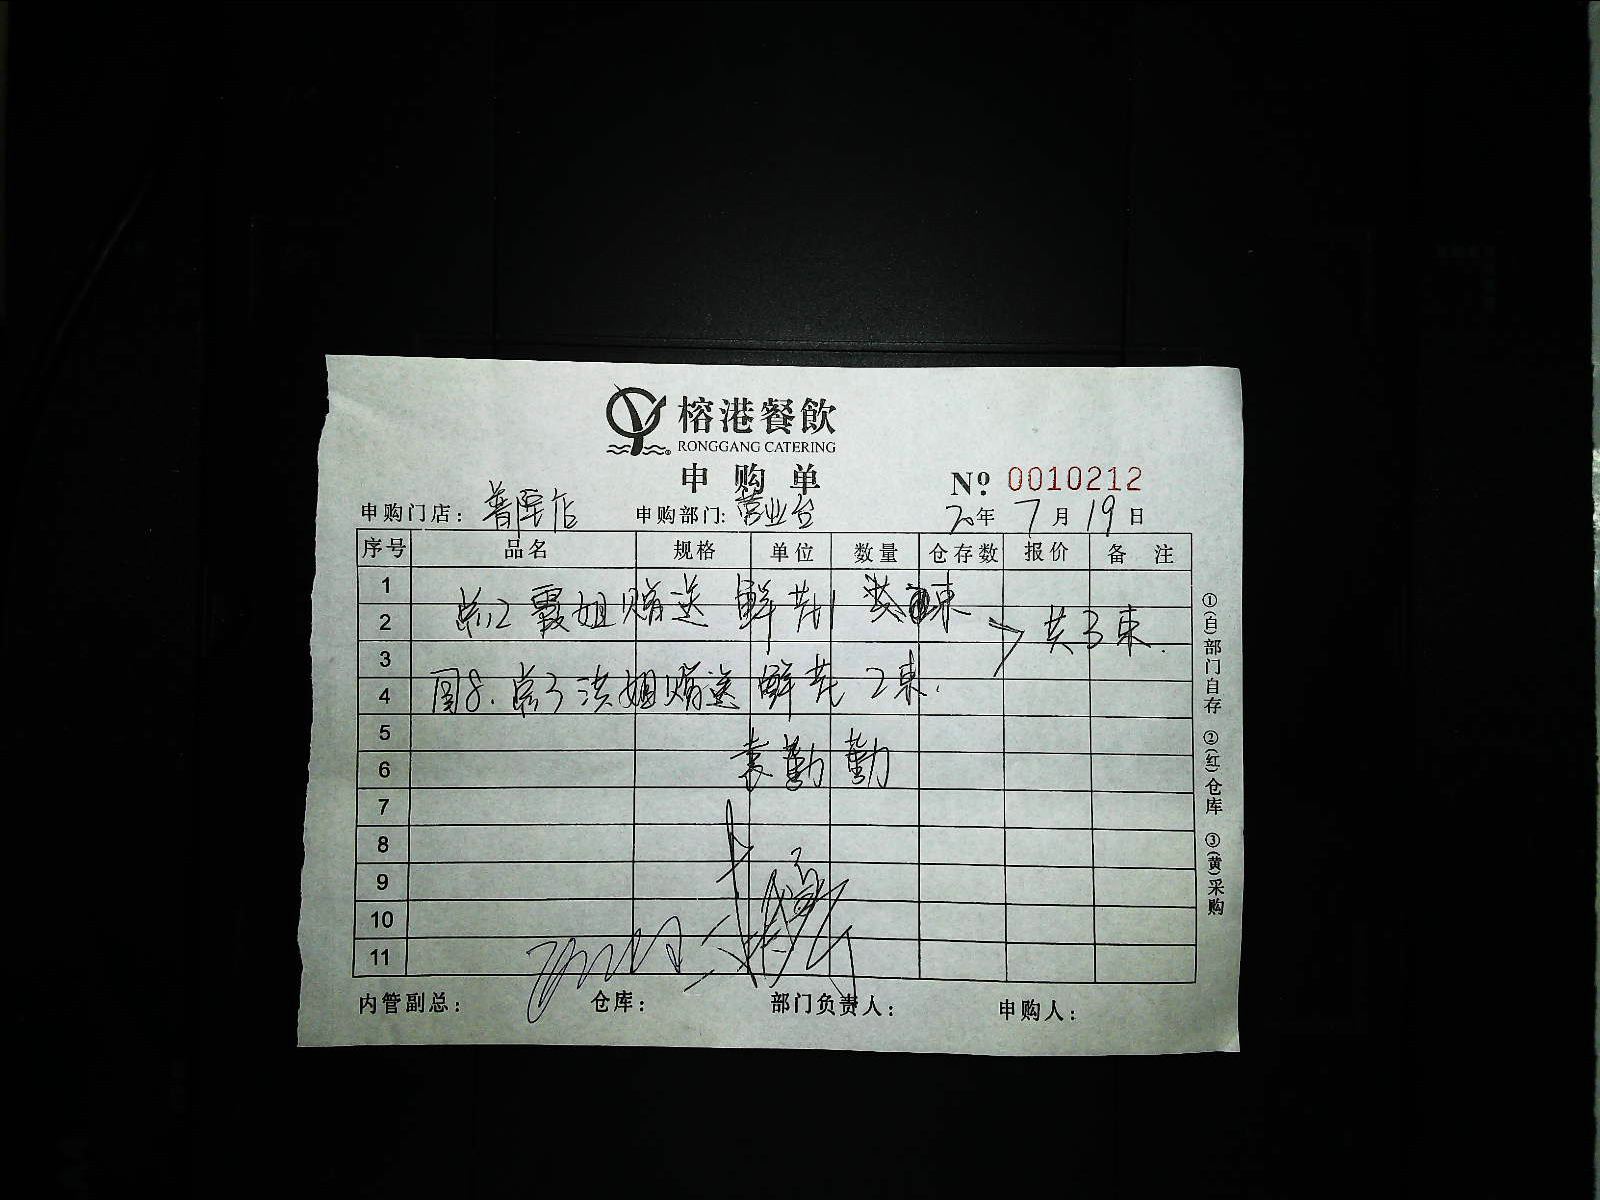 榕港餐飲
RONGGANG CATERING
申购单
Nº 0010212
申购门店: 店 申购部门: 营业台 20年 7月 19日
序号 品名 规格 单位 数量 仓存数 报价 备注
1
2 霞姐赠送 鲜花1 束 共3束.
3
4 8. 洪姐赠送 鲜花 2束.
5
6 袁勤勤
7
8
9
10
11
内管副总: 仓库: 部门负责人: 申购人:
①(白)部门自存 ②(红)仓库 ③(黄)采购